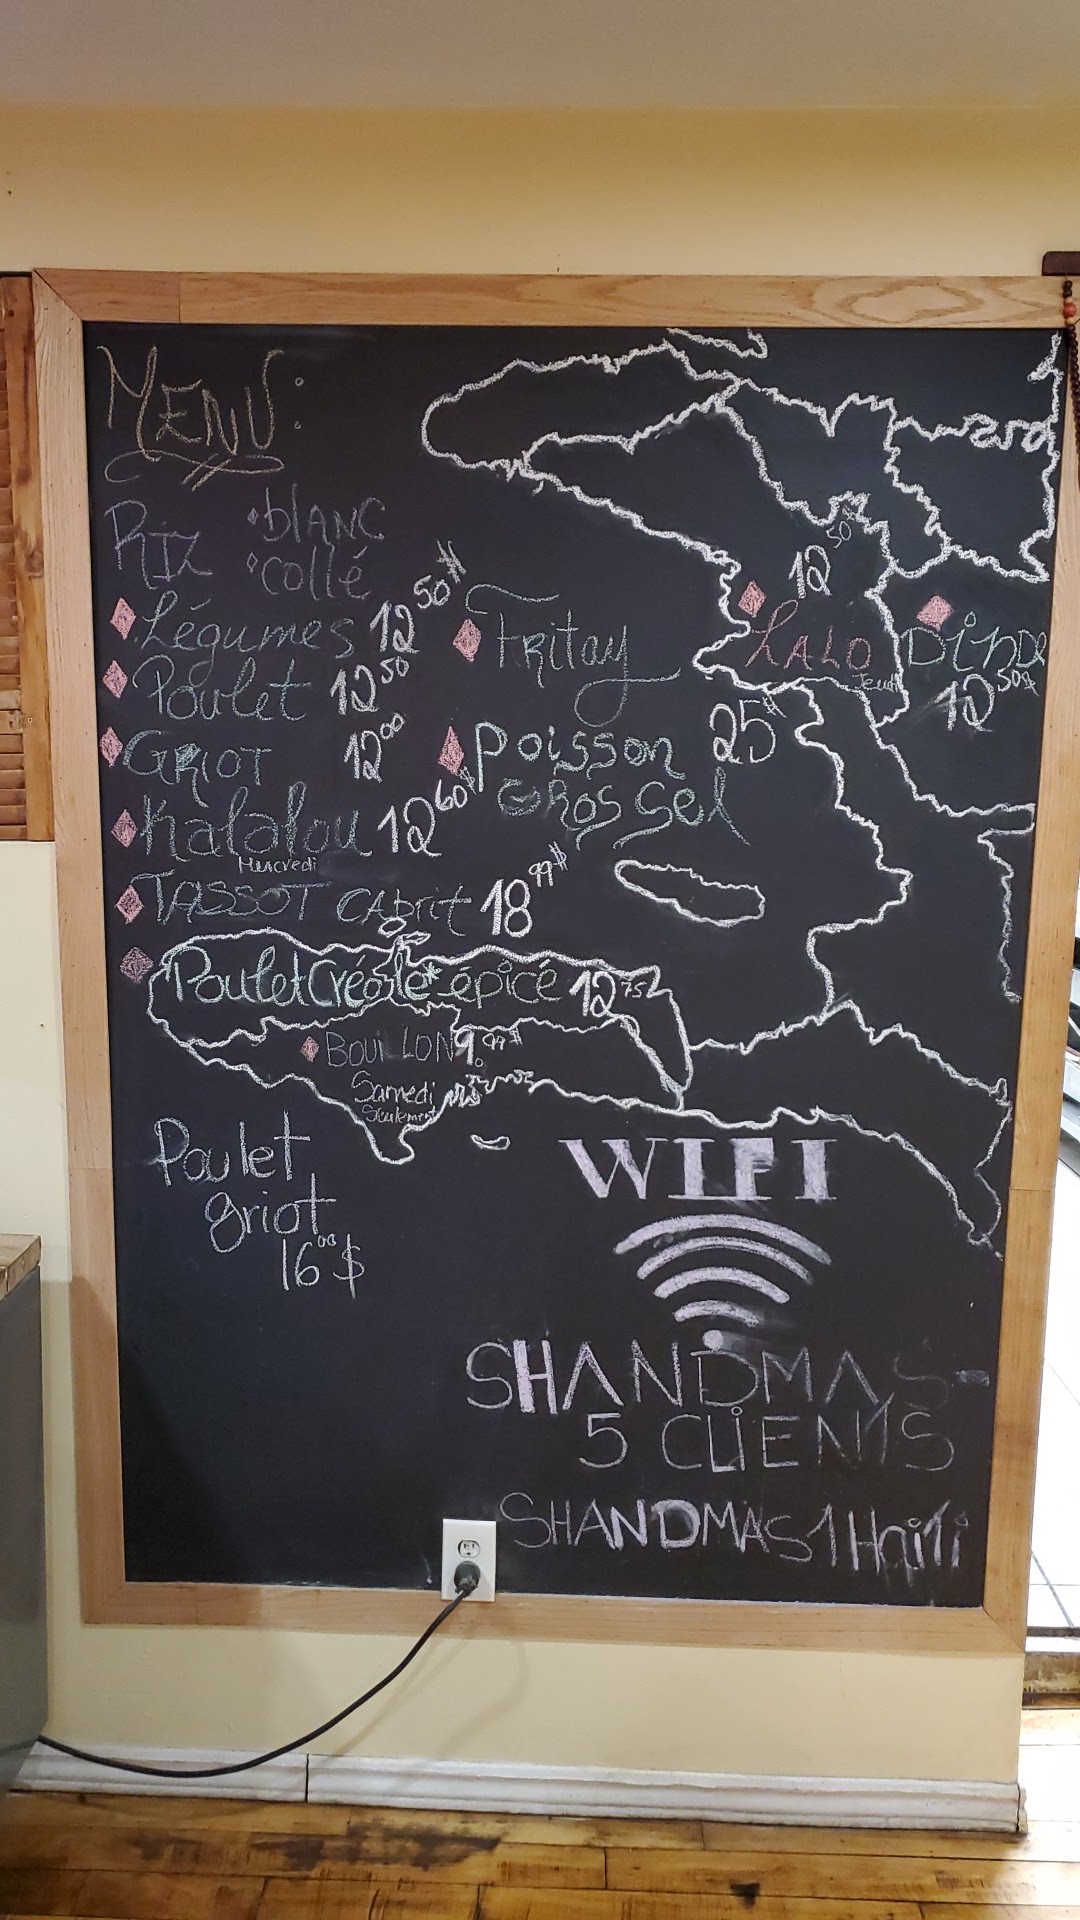 MENU:
RIZ
blANC
collé
Légumes 12 50$
Poulet 12 50
GRIOT 12 00
Kalalou 12 60$
Mercredi
TASSOT CAbrit 18 99$
Poulet Créole* épicé 12 75
BOUILLON 9.99$
Samedi
Seulement
Poulet
griot
16 00 $
FRitay
Poisson 25$
GROS Sel
12 50
LALO
Jeudi
Dinde
12 50$
WIFI
SHANDMAS-
5 CLIENTS
SHANDMAS1Haiti